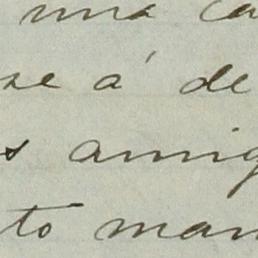 una ca
se á de
s amig
to man